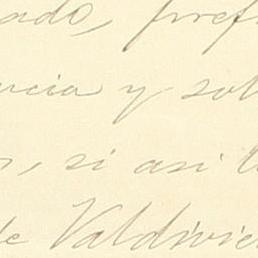 ado, pref
ncia y sol
, si asi l
de Valdivie